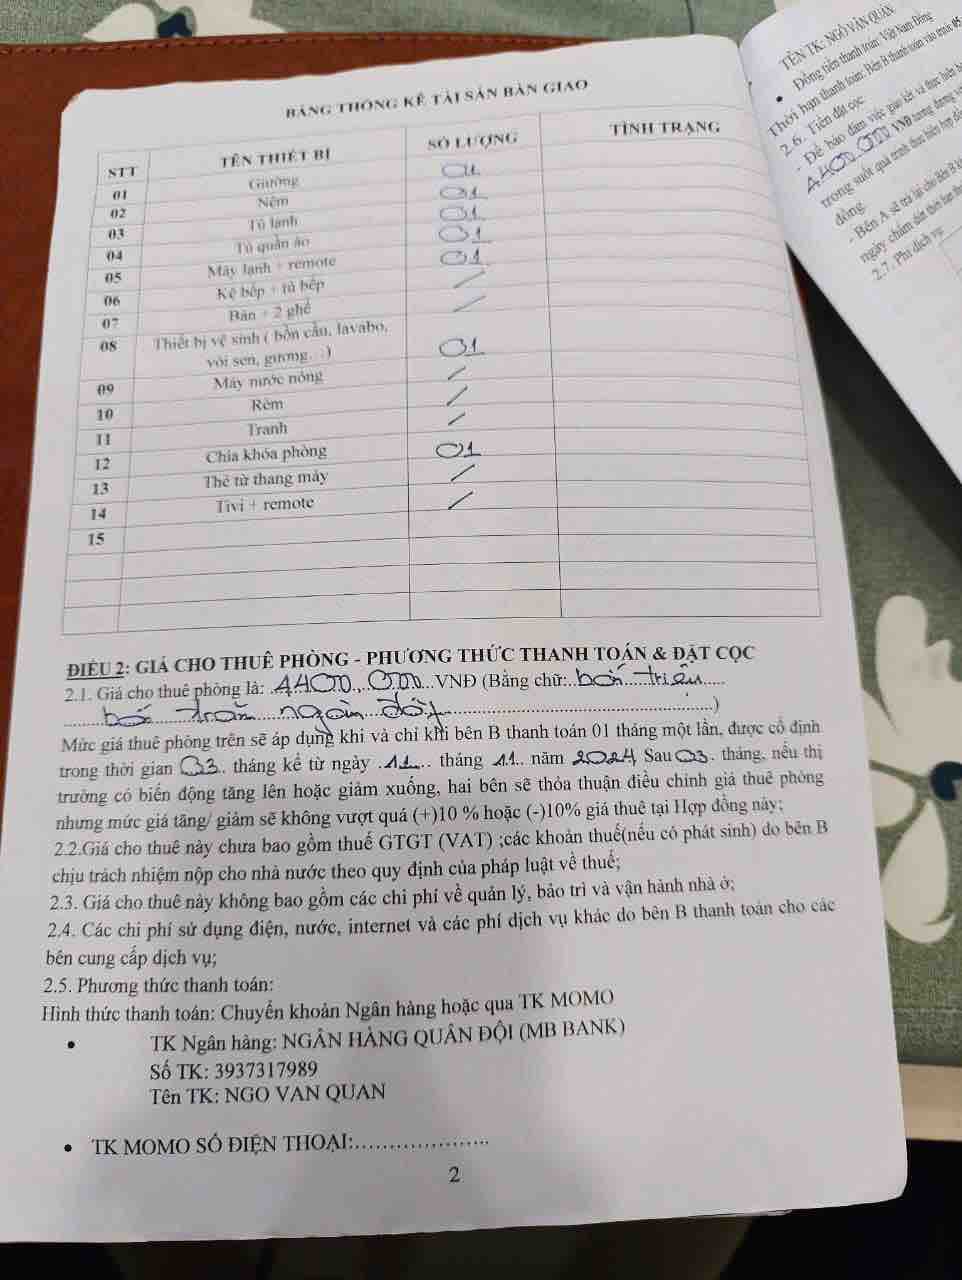 BẢNG THỐNG KÊ TÀI SẢN BÀN GIAO
STT TÊN THIẾT BỊ SỐ LƯỢNG TÌNH TRẠNG
01 Giường 01
02 Nệm 01
03 Tủ lạnh 01
04 Tủ quần áo 01
05 Máy lạnh + remote 01
06 Kệ bếp + tủ bếp /
07 Bàn + 2 ghế /
08 Thiết bị vệ sinh ( bồn cầu, lavabo,
vòi sen, gương…) 01
09 Máy nước nóng /
10 Rèm /
11 Tranh /
12 Chìa khóa phòng 01
13 Thẻ từ thang máy /
14 Tivi + remote /
15
ĐIỀU 2: GIÁ CHO THUÊ PHÒNG - PHƯƠNG THỨC THANH TOÁN & ĐẶT CỌC
2.1. Giá cho thuê phòng là: 4400.000 VNĐ (Bằng chữ: bốn triệu
bốn trăm ngàn đồng)
Mức giá thuê phòng trên sẽ áp dụng khi và chỉ khi bên B thanh toán 01 tháng một lần, được cố định
trong thời gian 03 tháng kể từ ngày 11 tháng 11 năm 2024 Sau 03 tháng, nếu thị
trường có biến động tăng lên hoặc giảm xuống, hai bên sẽ thỏa thuận điều chỉnh giá thuê phòng
nhưng mức giá tăng/ giảm sẽ không vượt quá (+)10 % hoặc (-)10% giá thuê tại Hợp đồng này;
2.2.Giá cho thuê này chưa bao gồm thuế GTGT (VAT) ;các khoản thuế(nếu có phát sinh) do bên B
chịu trách nhiệm nộp cho nhà nước theo quy định của pháp luật về thuế;
2.3. Giá cho thuê này không bao gồm các chi phí về quản lý, bảo trì và vận hành nhà ở;
2.4. Các chi phí sử dụng điện, nước, internet và các phí dịch vụ khác do bên B thanh toán cho các
bên cung cấp dịch vụ;
2.5. Phương thức thanh toán:
Hình thức thanh toán: Chuyển khoản Ngân hàng hoặc qua TK MOMO
• TK Ngân hàng: NGÂN HÀNG QUÂN ĐỘI (MB BANK)
Số TK: 3937317989
Tên TK: NGO VAN QUAN
• TK MOMO SỐ ĐIỆN THOẠI:....................
2
TÊN TK: NGÔ VĂN QUÂN
• Đồng tiền thanh toán: Việt Nam Đồng
Thời hạn thanh toán: Bên B thanh toán vào
2.6. Tiền đặt cọc:
- Để bảo đảm việc giao kết và thực hiện
4400.000 VNĐ tương đương
trong suốt quá trình thực hiện hợp
đồng.
- Bên A sẽ trả lại cho Bên B
ngày chấm dứt thời hạn
2.7. Phí dịch vụ: